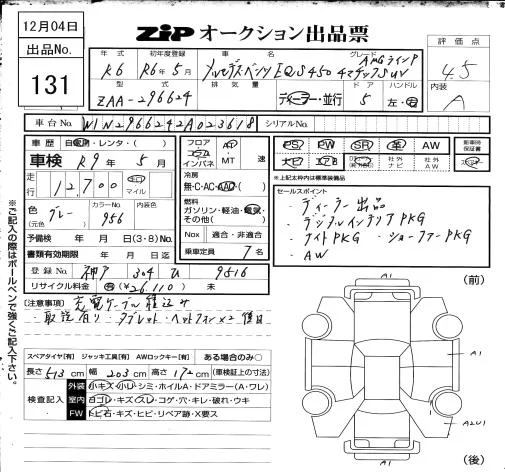 12月04日
出品No.
131
ZiP オークション出品票
年式 初年度登録 車名 グレード
R6 R6年5月 メルセデス・ベンツ EQS450 4マチックSUV AMGラインP
型式 排気量 ドア ハンドル
ZAA-296624 ディーラー・並行 5 左・右
評価点
4.5
内装
A
車台No. W1N2966242A023618 シリアルNo.
車歴 自家用・レンタ・( )
車検 R9年5月
走行 12,700 キロ マイル
色 グレー (元色) カラーNo. 956 内装色
予備検 年 月 日(3・8)No.
書類有効期限 年 月 日迄
登録No. 神戸 304 9516
リサイクル料金 有(¥26,110) 未
フロア コラム インパネ AT MT 速
冷房 無・C・AC・AAC・( )
燃料 ガソリン・軽油・電気・その他( )
Nox 適合・非適合
乗車定員 7名
PS PW SR 革 AW 新車時保証書
ナビ エアB 社外ナビ 社外AW
*上記太枠内は標準装備品
セールスポイント
・ディーラー出品
・デジタルインテリアPKG
・ナイトPKG ・ショーファーPKG
・AW
注意事項 充電ケーブル積込み
・取説有り ・タブレット ・ヘッドフォン×2 後日
スペアタイヤ[有] ジャッキ工具[有] AWロックキー[有] ある場合のみ○
長さ513cm 幅203cm 高さ172cm (車検証上の寸法)
検査記入
外装 小キズ・小凹・シミ・ホイルA・ドアミラー(A・ワレ)
室内 ヨゴレ・キズ・スレ・コゲ・穴・キレ・破れ・ウキ
FW トビ石・キズ・ヒビ・リペア跡・X要ス
※ご記入の際はボールペンで強くご記入下さい。
(前)
A1
A1
A2U1
A1
(後)